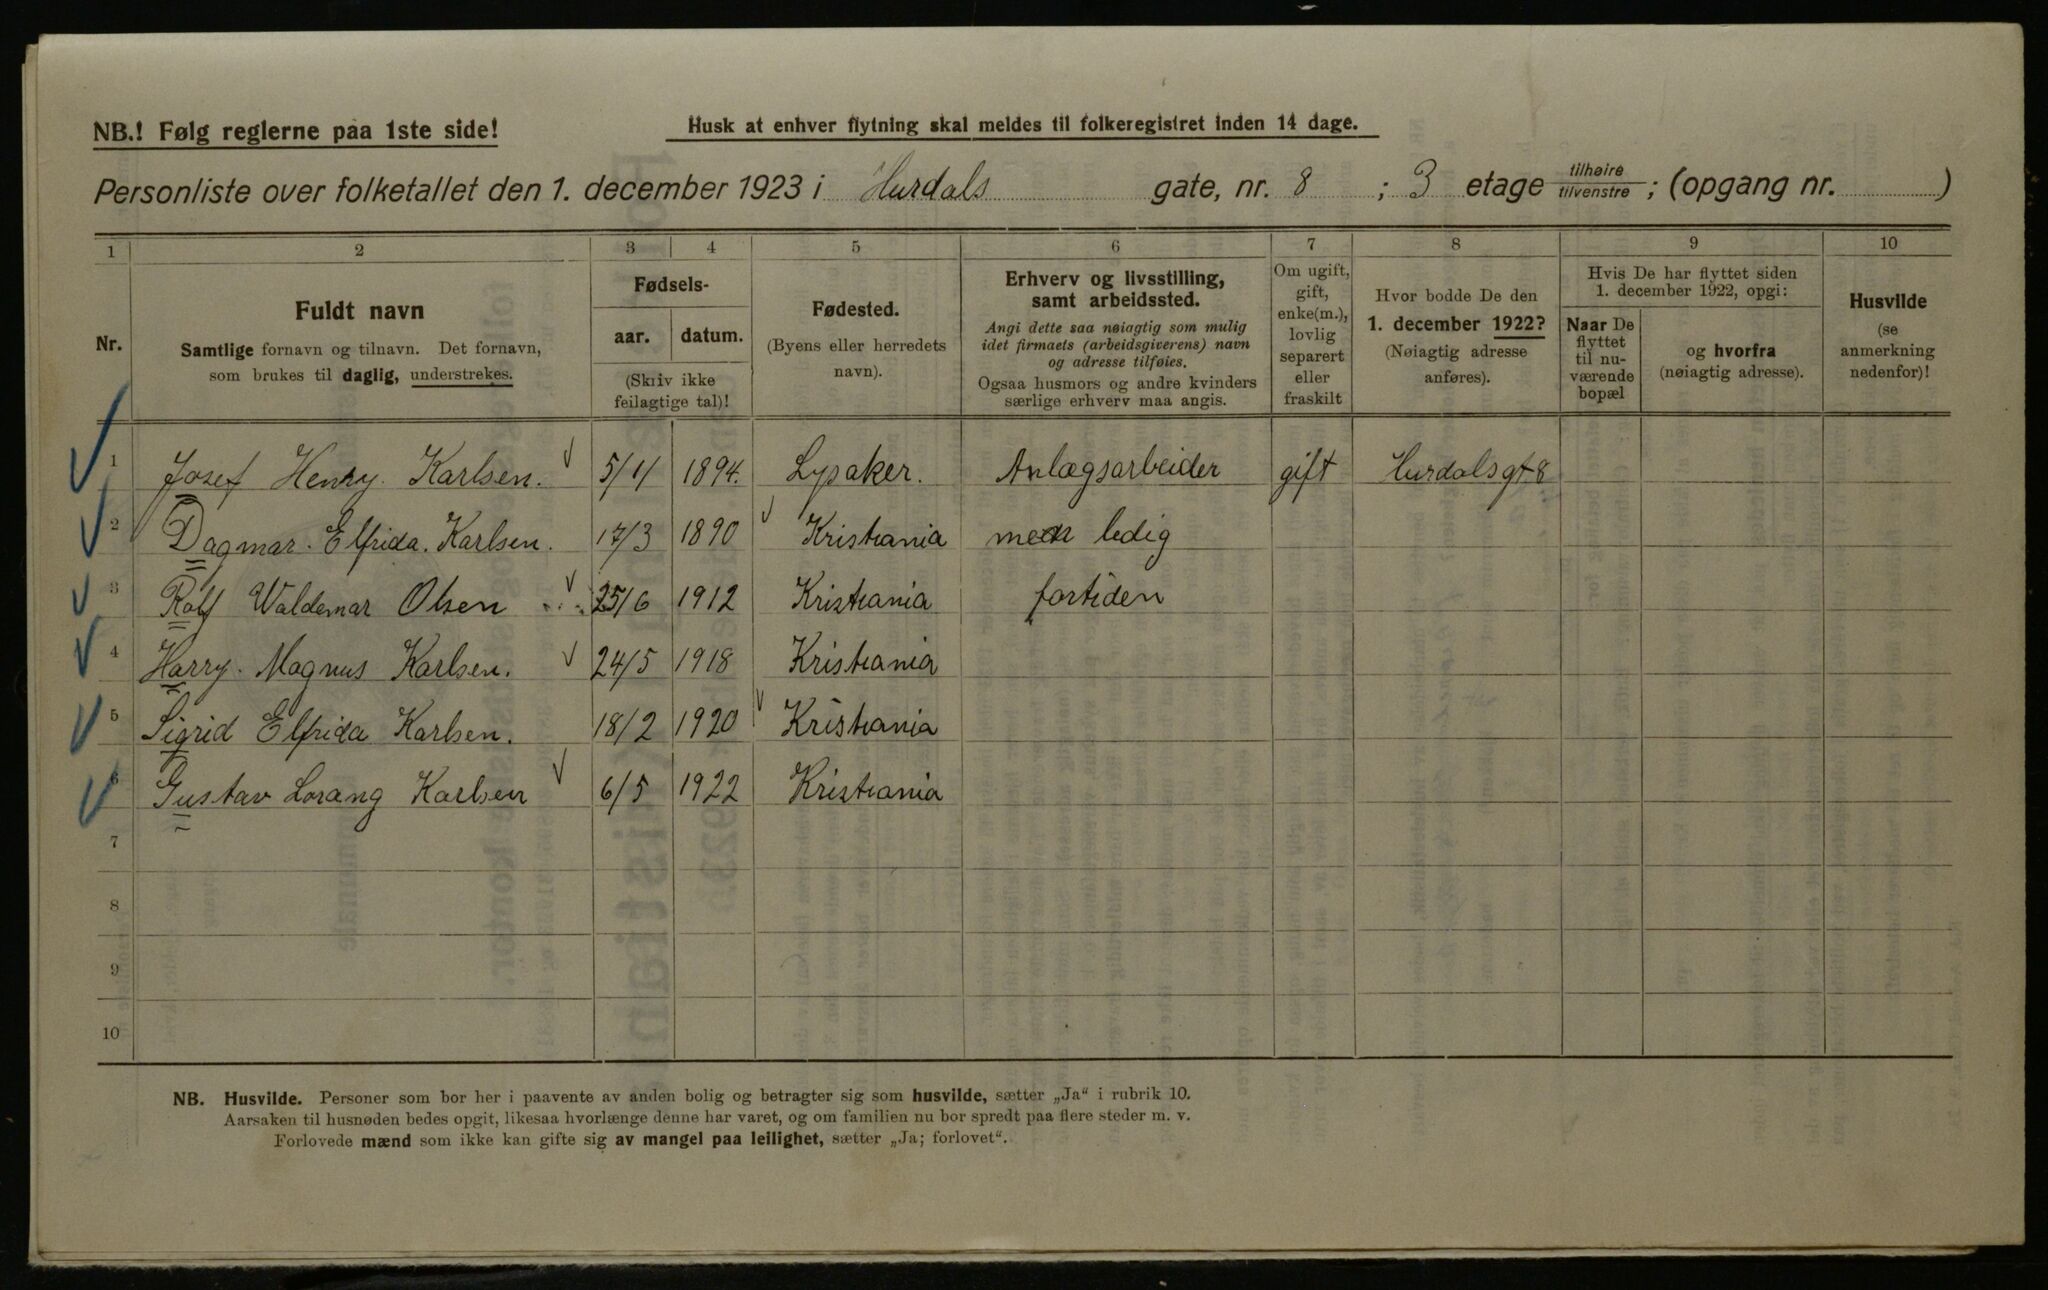 NB.! Følg reglerne paa 1ste side!
Husk at enhver flytning skal meldes til folkeregistret inden 14 dage.
Personliste over folketallet den 1. december 1923 i Hurdals gate, nr. 8 ; 3 etage tilhøire/tilvenstre ; (opgang nr. )
1 2 3 4 5 6 7 8 9 10
Nr.
Fuldt navn
Samtlige fornavn og tilnavn. Det fornavn,
som brukes til daglig, understrekes.
Fødsels-
aar. datum.
(Skriv ikke
feilagtige tal)!
Fødested.
(Byens eller herredets
navn).
Erhverv og livsstilling,
samt arbeidssted.
Angi dette saa nøiagtig som mulig
idet firmaets (arbeidsgiverens) navn
og adresse tilføies.
Ogsaa husmors og andre kvinders
særlige erhverv maa angis.
Om ugift,
gift,
enke(m.),
lovlig
separert
eller
fraskilt
Hvor bodde De den
1. december 1922?
(Nøiagtig adresse
anføres).
Hvis De har flyttet siden
1. december 1922, opgi:
Naar De
flyttet
til nu-
værende
bopæl
og hvorfra
(nøiagtig adresse).
Husvilde
(se
anmerkning
nedenfor)!
1 Josef Henry. Karlsen. 5/11 1894. Lysaker. Anlægsarbeider gift Hurdalsgt 8
2 Dagmar. Elfrida. Karlsen. 17/3 1890 Kristiania men ledig
3 Rolf Waldemar Olsen 25/6 1912 Kristiania fortiden
4 Harry. Magnus Karlsen. 24/5 1918 Kristiania
5 Sigrid Elfrida Karlsen. 18/2 1920 Kristiania
6 Gustav Lorang Karlsen 6/5 1922 Kristiania
7
8
9
10
NB. Husvilde. Personer som bor her i paavente av anden bolig og betragter sig som husvilde, sætter „Ja“ i rubrik 10.
Aarsaken til husnøden bedes opgit, likesaa hvorlænge denne har varet, og om familien nu bor spredt paa flere steder m. v.
Forlovede mænd som ikke kan gifte sig av mangel paa leilighet, sætter „Ja; forlovet“.